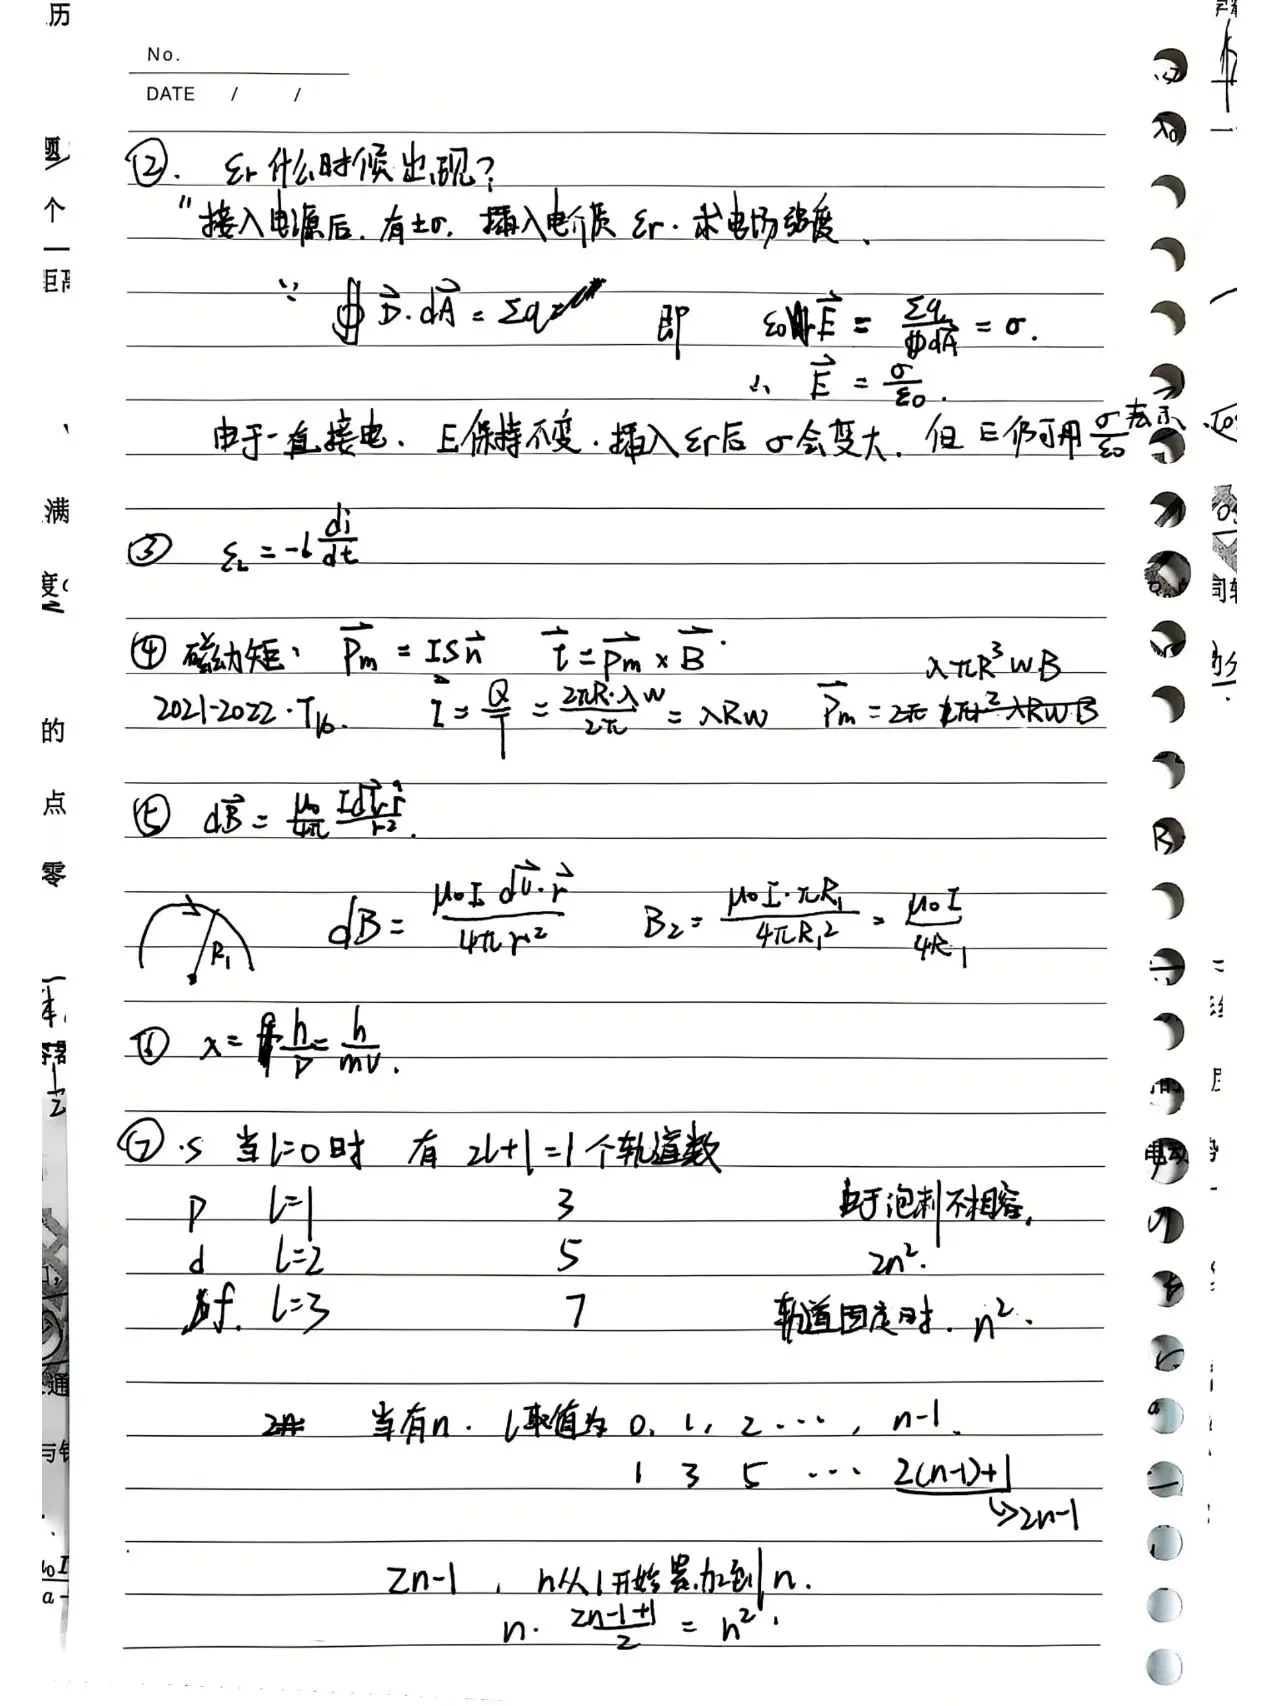 No.
DATE / /
② . εr 什么时候出现?
"接入电源后. 有±σ. 插入电介质 εr. 求电场强度.
∵ ∯ D⃗·dA⃗ = Σq 即 ε0 E⃗ = Σq/∯dA⃗ = σ.
∴ E⃗ = σ/ε0.
由于一直接电. E保持不变. 插入εr后 σ会变大. 但E仍可用 σ/ε0 表示.
③ εL = -L di/dt
④ 磁力矩: P⃗m = ISn⃗ t⃗ = P⃗m × B⃗.
λπR³wB
2021-2022·T16. I = Q/T = 2πR·λw/2π = λRw P⃗m = 2π
⑤ dB⃗ = μ0/4π Idl⃗·r̂/r².
R1 dB = μ0I dl⃗·r⃗/4πr² B2 = μ0I·πR1/4πR1² = μ0I/4R1
⑥ λ = h/p = h/mv.
⑦ .s 当l=0时 有 2l+1=1个轨道数
p l=1 3 由于泡利不相容,
d l=2 5 2n².
f. l=3 7 轨道固定时. n².
当有n. l取值为 0, 1, 2 ···, n-1.
1 3 5 ··· 2(n-1)+1
↳2n-1
2n-1 , n从1开始累加到n.
n· 2n-1+1/2 = n².